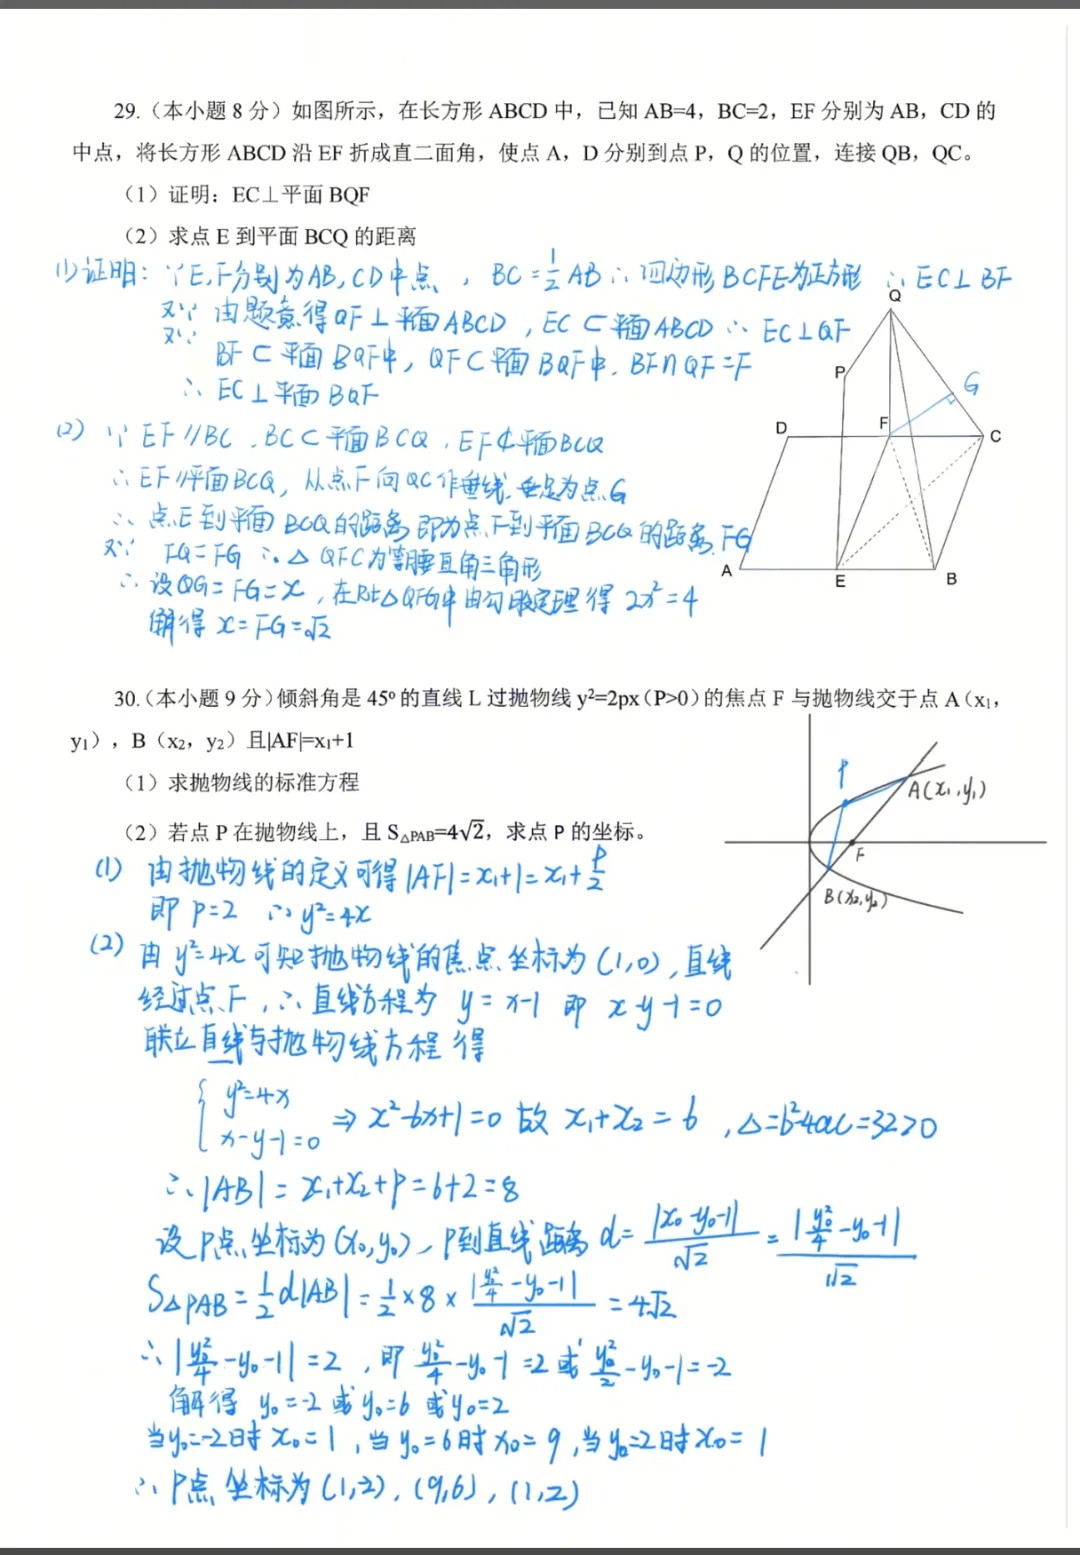 29.（本小题 8 分）如图所示，在长方形 ABCD 中，已知 AB=4，BC=2，EF 分别为 AB，CD 的
中点，将长方形 ABCD 沿 EF 折成直二面角，使点 A，D 分别到点 P，Q 的位置，连接 QB，QC。
（1）证明：EC⊥平面 BQF
（2）求点 E 到平面 BCQ 的距离
(1)证明：∵E,F分别为AB,CD中点，BC=1/2AB∴四边形BCFE为正方形 ∴EC⊥BF
又∵由题意得QF⊥平面ABCD，EC⊂平面ABCD∴EC⊥QF
又∵BF⊂平面BQF中，QF⊂平面BQF中，BF∩QF=F
∴EC⊥平面BQF
Q
P
G
D
F
C
A
E
B
(2) ∵EF∥BC，BC⊂平面BCQ，EF⊄平面BCQ
∴EF∥平面BCQ，从点F向QC作垂线，垂足为点G
∴点E到平面BCQ的距离即为点F到平面BCQ的距离FG
又∵FQ=FG ∴△QFC为等腰直角三角形
∴设QG=FG=x，在Rt△QFG中由勾股定理得2x²=4
解得x=FG=√2
30.（本小题 9 分）倾斜角是 45°的直线 L 过抛物线 y²=2px（P>0）的焦点 F 与抛物线交于点 A（x₁，
y₁），B（x₂，y₂）且|AF|=x₁+1
（1）求抛物线的标准方程
（2）若点 P 在抛物线上，且 S△PAB=4√2，求点 P 的坐标。
P
A(x₁,y₁)
F
B(x₂,y₂)
(1) 由抛物线的定义可得|AF|=x₁+1=x₁+P/2
即P=2 ∴y²=4x
(2) 由y²=4x可知抛物线的焦点坐标为(1,0)，直线
经过点F，∴直线方程为y=x-1即x-y-1=0
联立直线与抛物线方程得
{y²=4x
x-y-1=0 ⇒x²-6x+1=0故x₁+x₂=6，△=b²-4ac=32>0
∴|AB|=x₁+x₂+P=6+2=8
设P点坐标为(x₀,y₀)，P到直线距离d=|x₀-y₀-1|/√2=|y₀²/4-y₀-1|/√2
S△PAB=1/2d|AB|=1/2×8×|y₀²/4-y₀-1|/√2=4√2
∴|y₀²/4-y₀-1|=2，即y₀²/4-y₀-1=2或y₀²/2-y₀-1=-2
解得y₀=-2或y₀=6或y₀=2
当y₀=-2时x₀=1，当y₀=6时x₀=9，当y₀=2时x₀=1
∴P点坐标为(1,2)，(9,6)，(1,2)